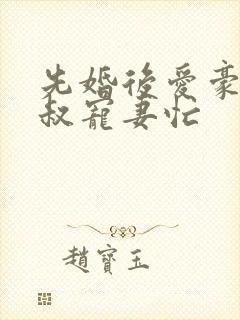 先婚後愛豪
叔寵妻忙
趙寶玉